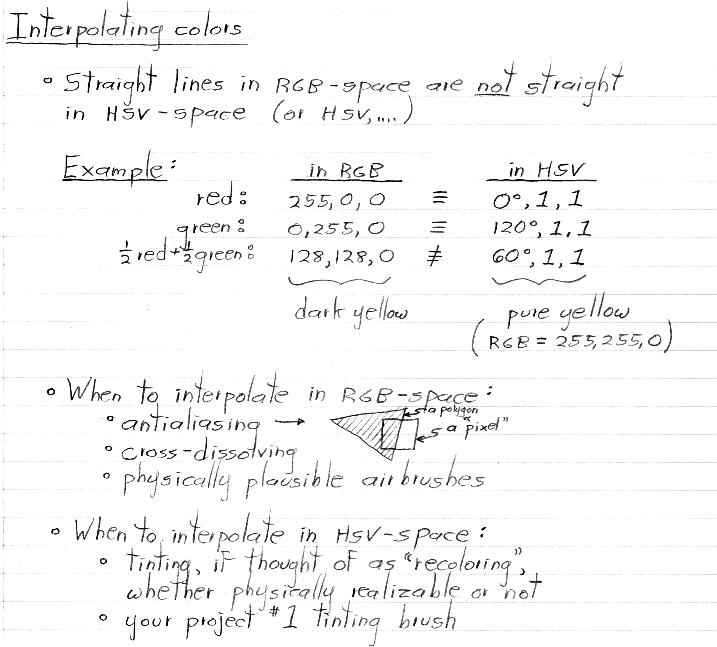 Interpolating colors
• Straight lines in RGB-space are not straight
in HSV-space (or HSV,....)
Example: in RGB in HSV
red: 255, 0, 0 ≡ 0°, 1, 1
green: 0, 255, 0 ≡ 120°, 1, 1
½ red + ½ green: 128, 128, 0 ≢ 60°, 1, 1
dark yellow pure yellow
(RGB = 255, 255, 0)
• When to interpolate in RGB-space:
• antialiasing → a polygon
a "pixel"
• cross-dissolving
• physically plausible airbrushes
• When to interpolate in HSV-space:
• tinting, if thought of as "recoloring",
whether physically realizable or not
• your project #1 tinting brush